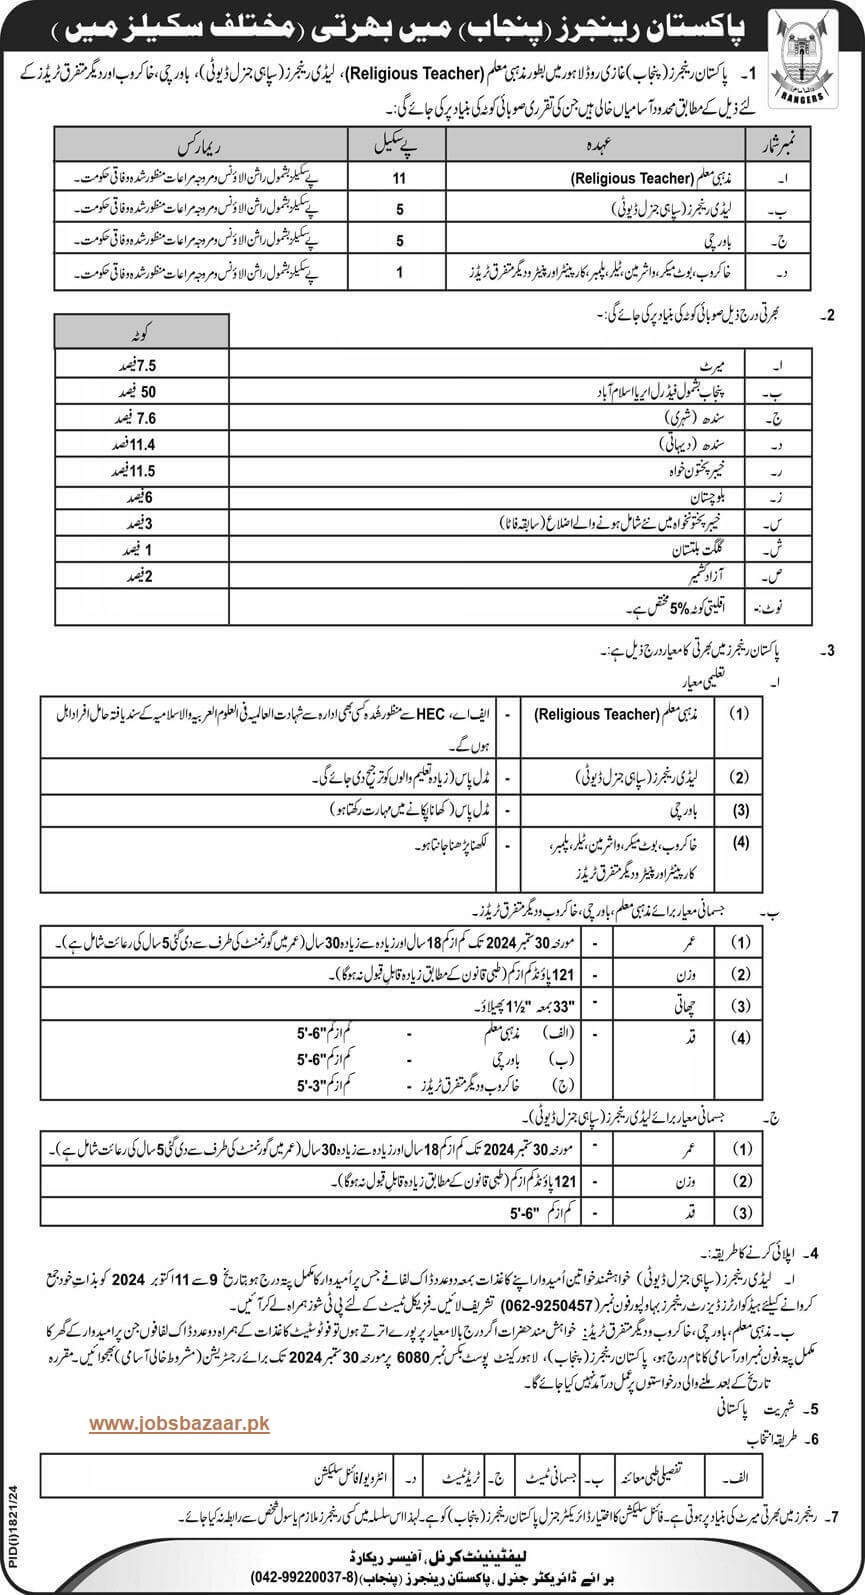 پاکستان رینجرز (پنجاب) میں بھرتی (مختلف سکیلز میں)
RANGERS
1۔ پاکستان رینجرز (پنجاب) غازی روڈ لاہور میں بطور مذہبی معلم (Religious Teacher)، لیڈی رینجرز (سپاہی جنرل ڈیوٹی)، باورچی، خاکروب اور دیگر متفرق ٹریڈز کے
لئے ذیل کے مطابق محدود آسامیاں خالی ہیں جن کی تقرری صوبائی کوٹہ کی بنیاد پر کی جائے گی:۔
نمبر شمار عہدہ پے سکیل ریمارکس
ا۔ مذہبی معلم (Religious Teacher) 11 پے سکیلز بشمول راشن الاؤنس و مروجہ مراعات منظور شدہ وفاقی حکومت۔
ب۔ لیڈی رینجرز (سپاہی جنرل ڈیوٹی) 5 پے سکیلز بشمول راشن الاؤنس و مروجہ مراعات منظور شدہ وفاقی حکومت۔
ج۔ باورچی 5 پے سکیلز بشمول راشن الاؤنس و مروجہ مراعات منظور شدہ وفاقی حکومت۔
د۔ خاکروب، بوٹ میکر، واشرمین، ٹیلر، پلمبر، کارپینٹر اور پینٹر و دیگر متفرق ٹریڈز 1 پے سکیلز بشمول راشن الاؤنس و مروجہ مراعات منظور شدہ وفاقی حکومت۔
2۔ بھرتی درج ذیل صوبائی کوٹہ کی بنیاد پر کی جائے گی:۔
کوٹہ
ا۔ میرٹ 7.5 فیصد
ب۔ پنجاب بشمول فیڈرل ایریا اسلام آباد 50 فیصد
ج۔ سندھ (شہری) 7.6 فیصد
د۔ سندھ (دیہاتی) 11.4 فصد
ر۔ خیبر پختون خواہ 11.5 فیصد
ز۔ بلوچستان 6 فیصد
س۔ خیبر پختونخواہ میں نئے شامل ہونے والے اضلاع (سابقہ فاٹا) 3 فیصد
ش۔ گلگت بلتستان 1 فیصد
ص۔ آزاد کشمیر 2 فیصد
نوٹ:- اقلیتی کوٹہ 5% مختص ہے۔
3۔ پاکستان رینجرز میں بھرتی کا معیار درج ذیل ہے:۔
ا۔ تعلیمی معیار
(1) مذہبی معلم (Religious Teacher) - ایف اے، HEC سے منظور شدہ کسی بھی ادارہ سے شہادت العالمیہ فی العلوم العربیہ والاسلامیہ کے سند یافتہ حامل افراد اہل
ہوں گے۔
(2) لیڈی رینجرز (سپاہی جنرل ڈیوٹی) - مڈل پاس (زیادہ تعلیم والوں کو ترجیح دی جائے گی۔
(3) باورچی - مڈل پاس (کھانا پکانے میں مہارت رکھتا ہو)
(4) خاکروب، بوٹ میکر، واشرمین، ٹیلر، پلمبر، - لکھنا پڑھنا جانتا ہو۔
کارپینٹر اور پینٹر و دیگر متفرق ٹریڈز
ب۔ جسمانی معیار برائے مذہبی معلم، باورچی، خاکروب و دیگر متفرق ٹریڈز۔
(1) عمر - مورخہ 30 ستمبر 2024 تک کم از کم 18 سال اور زیادہ سے زیادہ 30 سال (عمر میں گورنمنٹ کی طرف سے دی گئی 5 سال کی رعائت شامل ہے)۔
(2) وزن - 121 پاؤنڈ کم از کم (طبی قانون کے مطابق زیادہ قابل قبول نہ ہوگا)۔
(3) چھاتی - 33" بمعہ 1½" پھیلاؤ۔
(4) قد - (الف) مذہبی معلم - کم از کم 5'-6"
(ب) باورچی - کم از کم 5'-6"
(ج) خاکروب و دیگر متفرق ٹریڈز - کم از کم 5'-3"
ج۔ جسمانی معیار برائے لیڈی رینجرز (سپاہی جنرل ڈیوٹی)۔
(1) عمر - مورخہ 30 ستمبر 2024 تک کم از کم 18 سال اور زیادہ سے زیادہ 30 سال (عمر میں گورنمنٹ کی طرف سے دی گئی 5 سال کی رعائت شامل ہے)۔
(2) وزن - 121 پاؤنڈ کم از کم (طبی قانون کے مطابق زیادہ قابل قبول نہ ہوگا)۔
(3) قد - کم از کم 5'-6"
4۔ اپلائی کرنے کا طریقہ:۔
ا۔ لیڈی رینجرز (سپاہی جنرل ڈیوٹی) خواہشمند خواتین اُمیدوار اپنے کاغذات بمعہ دو عدد ڈاک لفافے جس پر اُمیدوار کا مکمل پتہ درج ہو بتاریخ 9 سے 11 اکتوبر 2024 کو بذات خود جمع
کروانے کیلئے ہیڈکوارٹرز ڈیزرٹ رینجرز بہاولپور فون نمبر (062-9250457) تشریف لائیں۔ فزیکل ٹیسٹ کے لئے پی ٹی شوز ہمراہ لے کر آئیں۔
ب۔ مذہبی معلم، باورچی، خاکروب و دیگر متفرق ٹریڈز: خواہش مند حضرات اگر درج بالا معیار پر پورے اترتے ہوں تو فوٹوسٹیٹ کاغذات کے ہمراہ دو عدد ڈاک لفافوں جن پر امیدوار کے گھر کا
مکمل پتہ، فون نمبر اور آسامی کا نام درج ہو، پاکستان رینجرز (پنجاب)، لاہور کینٹ پوسٹ بکس نمبر 6080 پر مورخہ 30 ستمبر 2024 تک برائے رجسٹریشن (مشروط خالی آسامی) بھجوائیں۔ مقررہ
تاریخ کے بعد ملنے والی درخواستوں پر عمل درآمد نہیں کیا جائے گا۔
5۔ شہریت پاکستانی
www.jobsbazaar.pk
6۔ طریقہ انتخاب
الف۔ تفصیلی طبی معائنہ ب۔ جسمانی ٹیسٹ ج۔ ٹریڈ ٹیسٹ د۔ انٹرویو/فائنل سلیکشن
7۔ رینجرز میں بھرتی میرٹ کی بنیاد پر ہوتی ہے۔ فائنل سلیکشن کا اختیار ڈائریکٹر جنرل پاکستان رینجرز (پنجاب) کو ہے۔ لہذا اس سلسلہ میں کسی رینجرز ملازم یا سول شخص سے رابطہ نہ کیا جائے۔
PID(i)1821/24
لیفٹیننٹ کرنل، آفیسر ریکارڈ
برائے ڈائریکٹر جنرل، پاکستان رینجرز (پنجاب) (042-99220037-8)